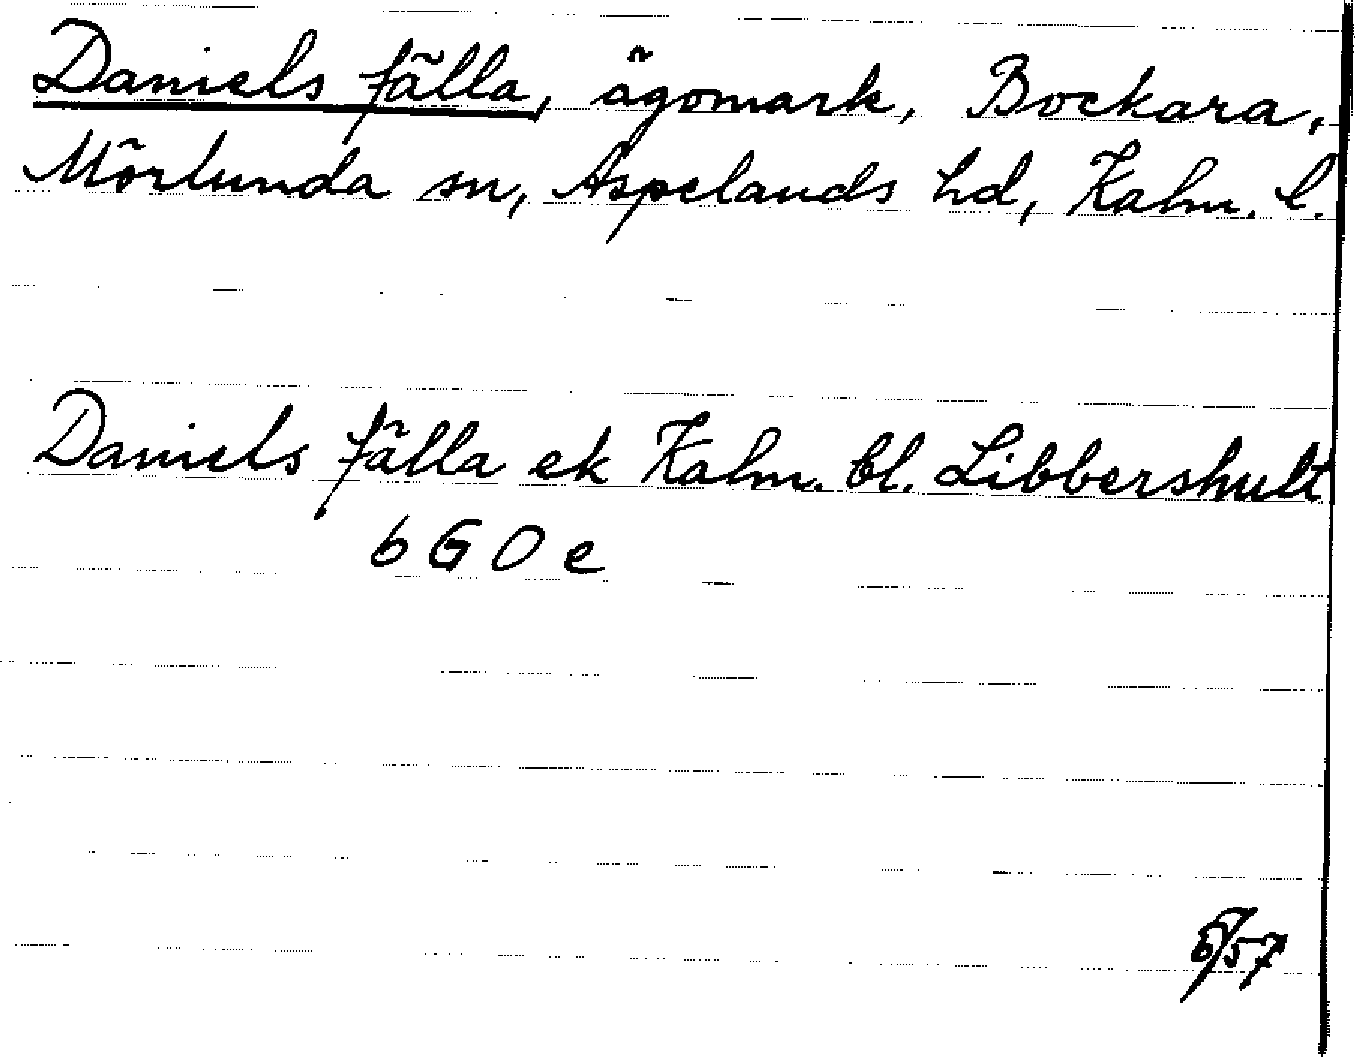 Daniels fälla, ägomark, Bockara,
Mörlunda sn, Aspelands hd, Kalm. l.
Daniels fälla ek Kalm. bl. Libbershult
6 G O e
6/57